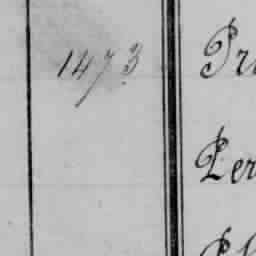 1473 Pr
Per